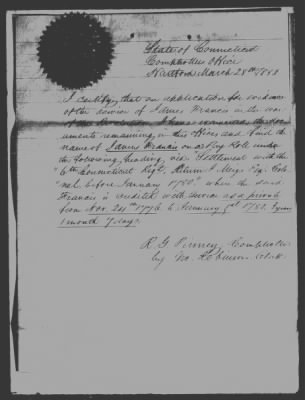 State of Connecticut
Comptrollers Office
Hartford March 28th 1883
I certify, that on application for evidence
of the service of James Francis in the war
of the Revolution I have examined the docu
ments remaining in this Office and find the
name of James Francis on a Pay Roll under
the following heading, viz. Settlement with the
6th Connecticut Regt. Return J. Meigs Esq. Colo-
nel, before January 1780. where the said
Francis is credited with service as a private
from Nov. 24th 1776 to January 1st 1780. 3 years
1 month 7 days.
Comptroller
by Clerk